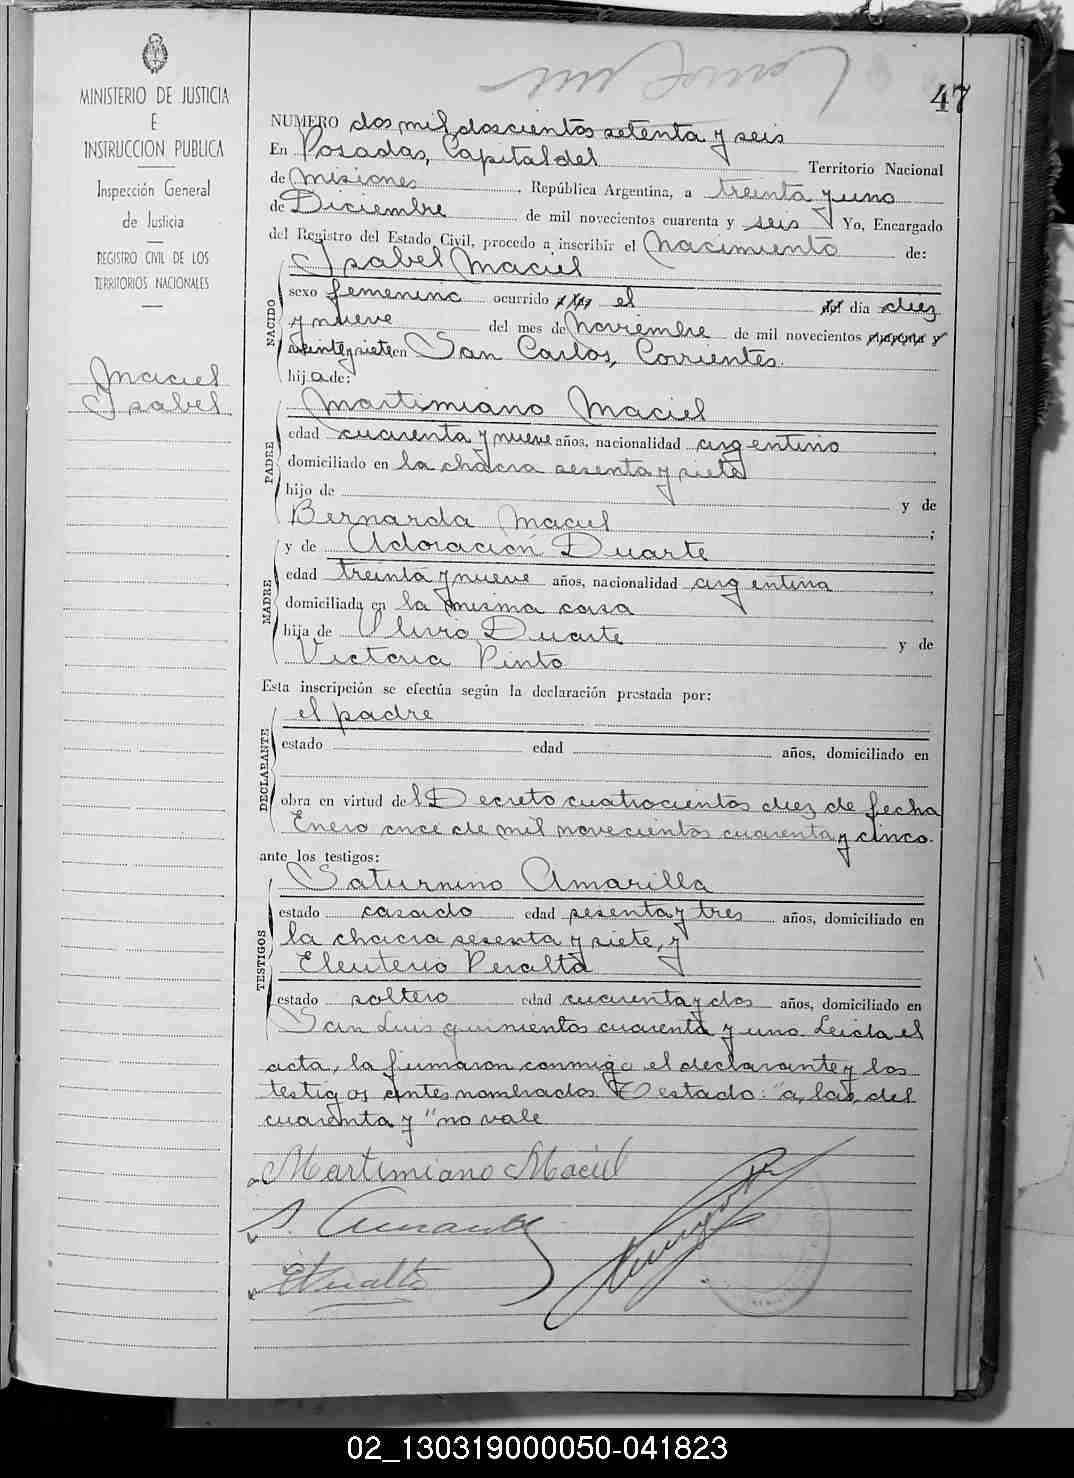 47
MINISTERIO DE JUSTICIA
E
INSTRUCCION PUBLICA
Inspección General
de Justicia
REGISTRO CIVIL DE LOS
TERRITORIOS NACIONALES
Maciel
Isabel
NUMERO dos mil doscientos setenta y seis
En Posadas, Capital del Territorio Nacional
de Misiones, República Argentina, a treinta y uno
de Diciembre de mil novecientos cuarenta y seis Yo, Encargado
del Registro del Estado Civil, procedo a inscribir el Nacimiento de:
Isabel Maciel
NACIDO
sexo femenino ocurrido a las el del día diez
y nueve del mes de Noviembre de mil novecientos cuarenta y
veinte y siete en San Carlos, Corrientes.
hija de:
Martimiano Maciel
PADRE
edad cuarenta y nueve años, nacionalidad argentino
domiciliado en la chacra sesenta y siete
hijo de y de
Bernarda Maciel;
y de Adoración Duarte
MADRE
edad treinta y nueve años, nacionalidad argentina
domiciliada en la misma casa
hija de Olivio Duarte y de
Victoria Pinto
Esta inscripción se efectúa según la declaración prestada por:
el padre
DECLARANTE
estado edad años, domiciliado en
obra en virtud del Decreto cuatrocientos diez de fecha
Enero once de mil novecientos cuarenta y cinco.
ante los testigos:
Saturnino Amarilla
TESTIGOS
estado casado edad sesenta y tres años, domiciliado en
la chacra sesenta y siete, y
Eleuterio Peralta
estado soltero edad cuarenta y dos años, domiciliado en
San Luis quinientos cuarenta y uno. Leida el
acta, la firmaron conmigo el declarante y los
testigos antes nombrados. Testado: "a, las, del
cuarenta y" no vale
Martimiano Maciel
S. Amarilla
E Peralta
02_130319000050-041823